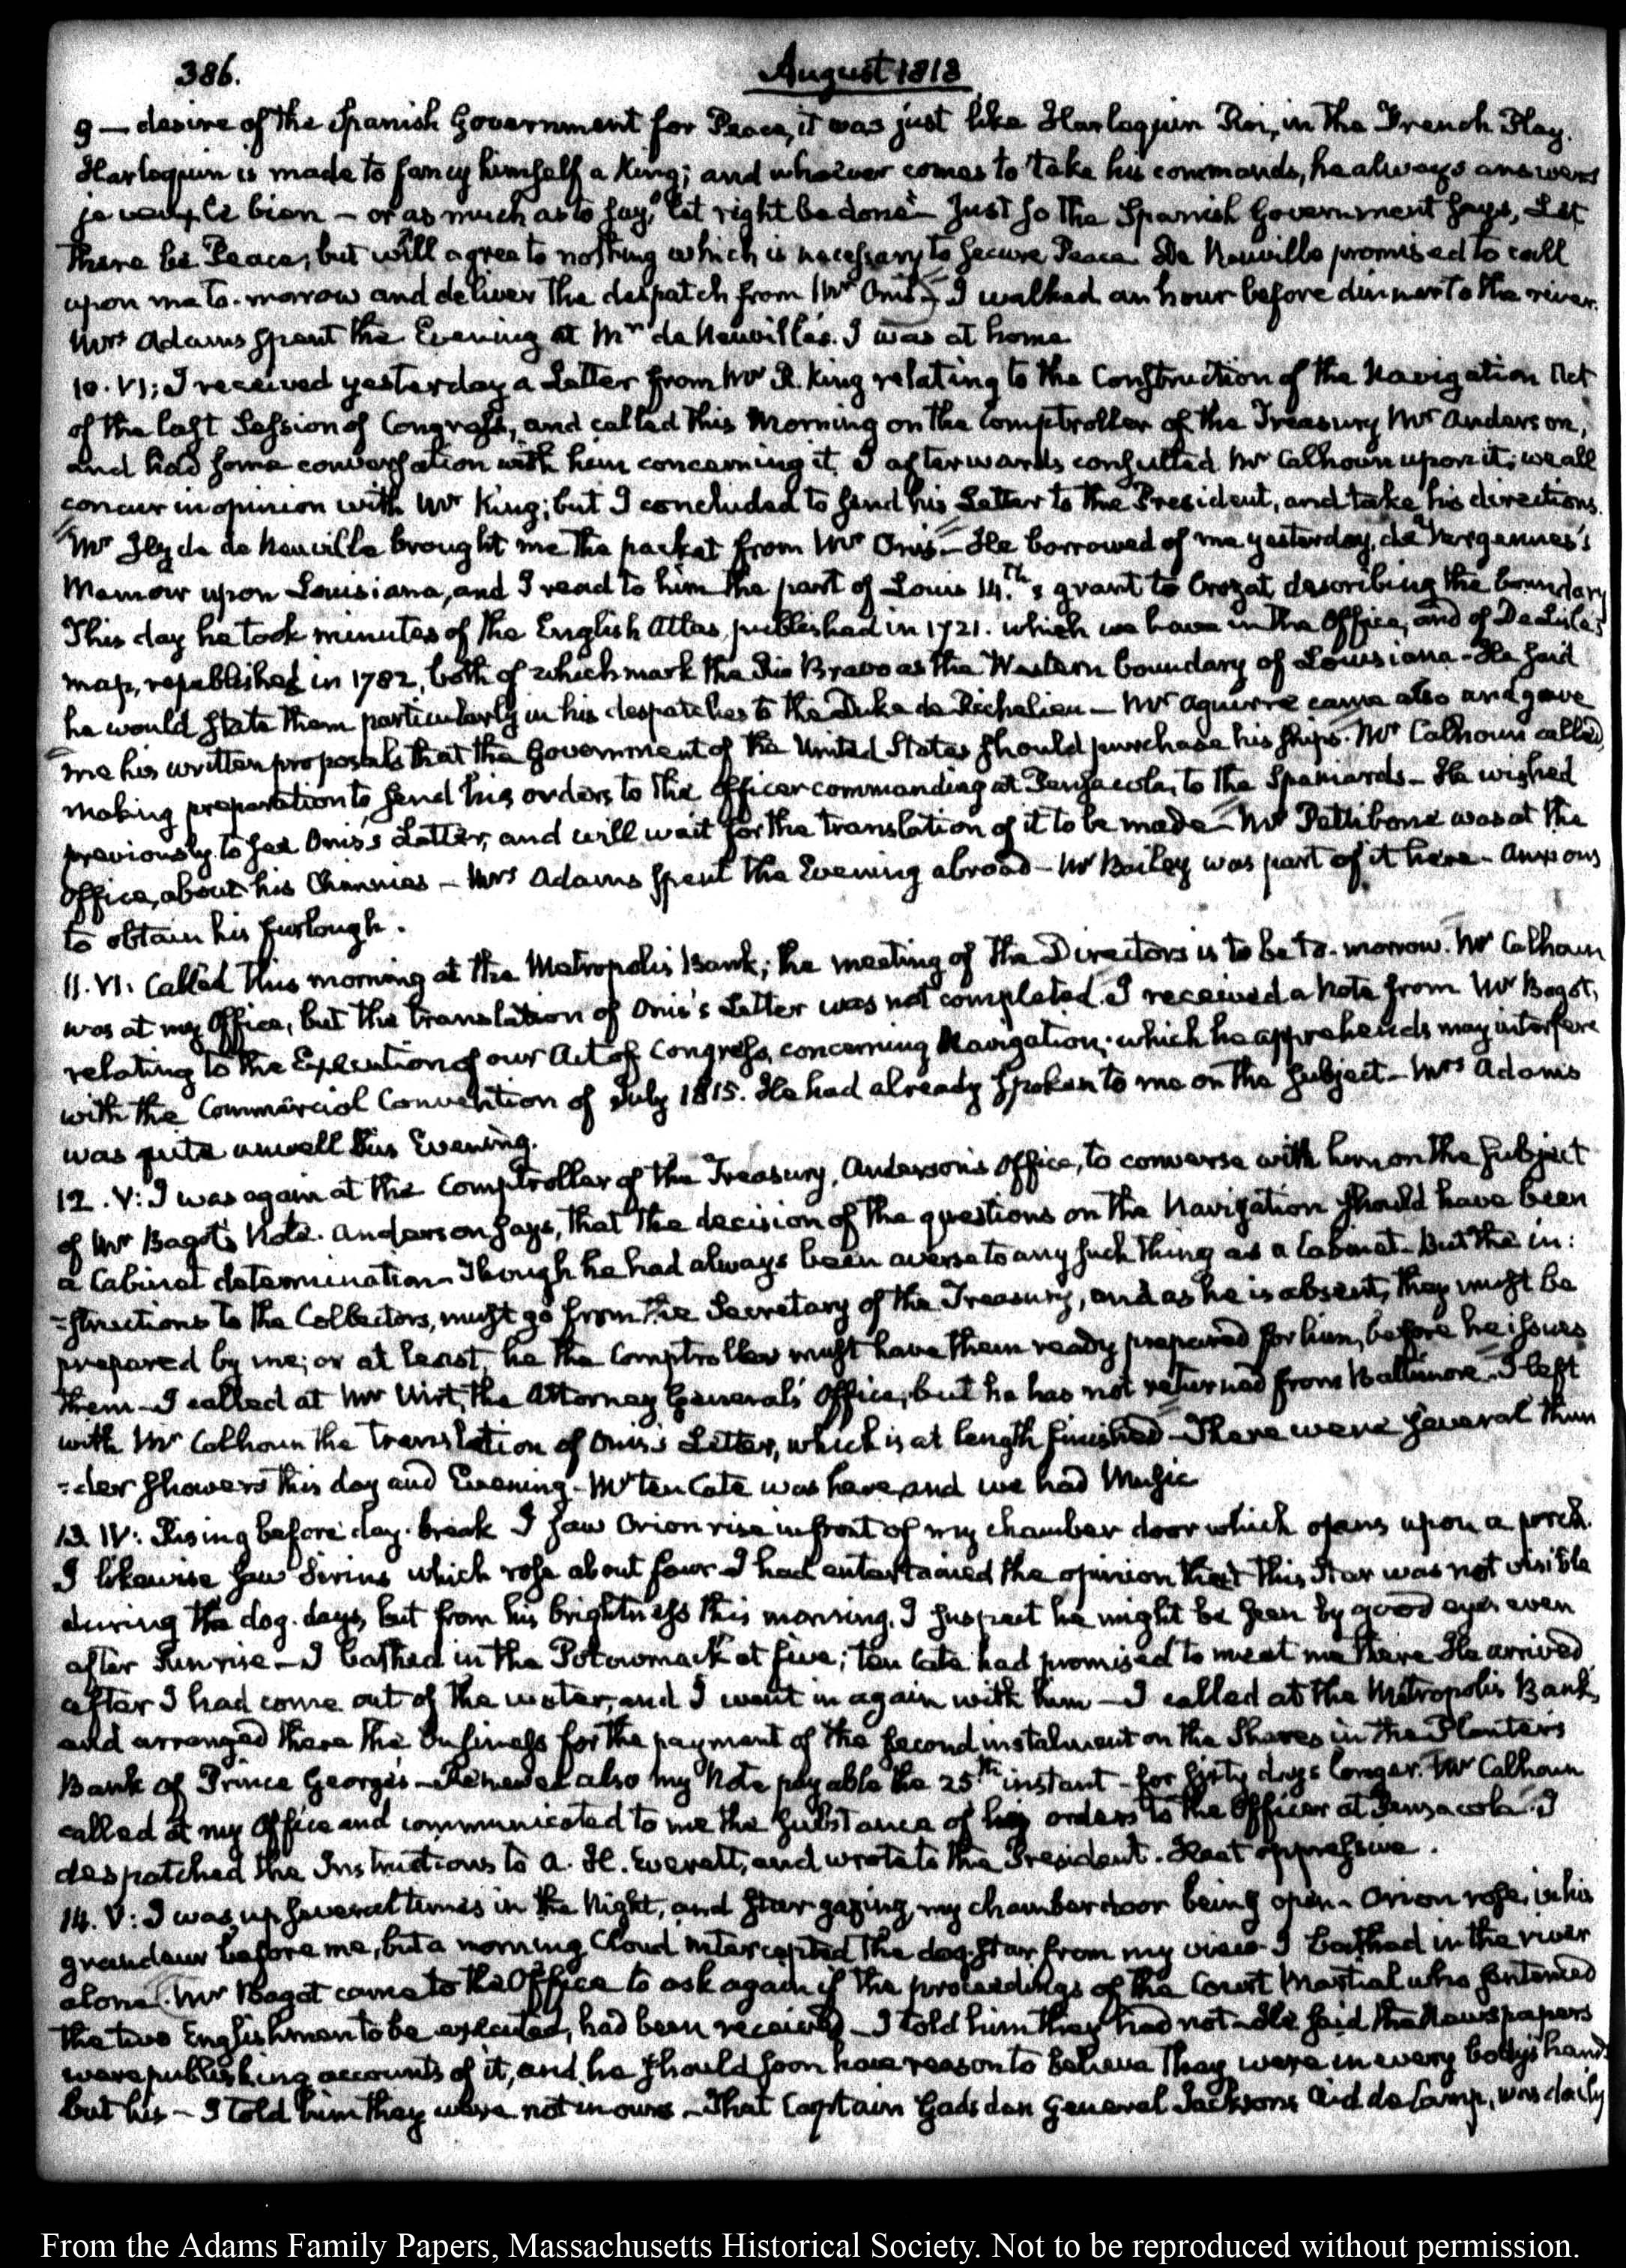 386.
August 1818
9 — desire of the Spanish Government for Peace, it was just like Harlequin Roi, in the French Play.
Harlequin is made to fancy himself a King; and whoever comes to take his commands, he always answers
je veux le bien — or as much as to say, "let right be done" — Just so the Spanish Government says, Let
there be Peace; but will agree to nothing which is necessary to secure Peace De Neuville promised to call
upon me to-morrow and deliver the despatch from Mr Onis — I walked an hour before dinner to the river.
Mrs Adams spent the Evening at Mrs de Neuville's. I was at home.
10. VI; I received yesterday a Letter from Mr R. King relating to the Construction of the Navigation Act
of the last Session of Congress, and called this Morning on the Comptroller of the Treasury Mr Anderson,
and had some conversation with him concerning it. I afterwards consulted Mr Calhoun upon it; we all
concur in opinion with Mr King; but I concluded to send his Letter to the President, and take his directions.
Mr Hyde de Neuville brought me the packet from Mr Onis — He borrowed of me yesterday, de Vergennes's
Memoir upon Louisiana, and I read to him the part of Louis 14.th's grant to Crozat, describing the boundary
This day he took minutes of the English Atlas, published in 1721. which we have in the Office, and of De Lisle's
map, republished in 1782, both of which mark the Rio Bravo as the Western boundary of Louisiana — He said
he would state them particularly in his despatches to the Duke de Richelieu — Mr Aguirre came also and gave
me his written proposals that the Government of the United States should purchase his ships. Mr Calhoun called,
making preparation to send his orders to the Officer commanding at Pensacola, to the Spaniards — He wished
previously to see Onis's Letter, and will wait for the translation of it to be made — Mr Pettibone was at the
Office, about his Channies — Mrs Adams spent the Evening abroad — Mr Bailey was part of it here — anxious
to obtain his furlough.
11. VI: Called this morning at the Metropolis Bank; the meeting of the Directors is to be to-morrow. Mr Calhoun
was at my Office, but the translation of Onis's Letter was not completed. I received a Note from Mr Bagot,
relating to the Execution of our Act of Congress, concerning Navigation; which he apprehends may interfere
with the Commercial Convention of July 1815. He had already spoken to me on the subject — Mrs Adams
was quite unwell this Evening.
12. V: I was again at the Comptroller of the Treasury, Anderson's Office, to converse with him on the subject
of Mr Bagot's Note. Anderson says, that the decision of the questions on the Navigation should have been
a Cabinet determination — Though he had always been averse to any such thing as a Cabinet — But the in:
=structions to the Collectors, must go from the Secretary of the Treasury, and as he is absent, they must be
prepared by me; or at least, he the Comptroller must have them ready prepared for him, before he issues
them — I called at Mr Wirt, the Attorney General's Office, but he has not returned from Baltimore. I left
with Mr Calhoun the translation of Onis's Letter, which is at length finished — There were several thun
=der showers this day and Evening — Mr ten Cate was here, and we had Music
13. IV: Rising before day-break I saw Orion rise in front of my chamber door which opens upon a porch.
I likewise saw Sirius which rose about four — I had entertained the opinion that this Star was not visible
during the dog-days, but from his brightness this morning, I suspect he might be seen by good eyes even
after Sunrise — I bathed in the Potowmack at five; ten Cate had promised to meet me there He arrived
after I had come out of the water, and I went in again with him — I called at the Metropolis Bank,
and arranged there the business for the payment of the second instalment on the Shares in the Planter's
Bank of Prince George's — Renewed also my Note payable the 25th instant — for sixty days longer. Mr Calhoun
called at my Office and communicated to me the substance of his orders to the Officer at Pensacola. I
despatched the Instructions to A. H. Everett, and wrote to the President. Heat oppressive.
14. V: I was up several times in the Night, and star gazing, my chamber door being open — Orion rose, in his
grandeur before me, but a morning Cloud intercepted the dog-star from my view — I bathed in the river
alone. Mr Bagot came to the Office to ask again if the proceedings of the Court Martial who sentenced
the two Englishmen to be executed, had been received — I told him they had not — He said the Newspapers
were publishing accounts of it, and he should soon have reason to believe they were in every body's hands
but his — I told him they were not in ours — That Captain Gadsden General Jackson's Aid de Camp, was daily
From the Adams Family Papers, Massachusetts Historical Society. Not to be reproduced without permission.